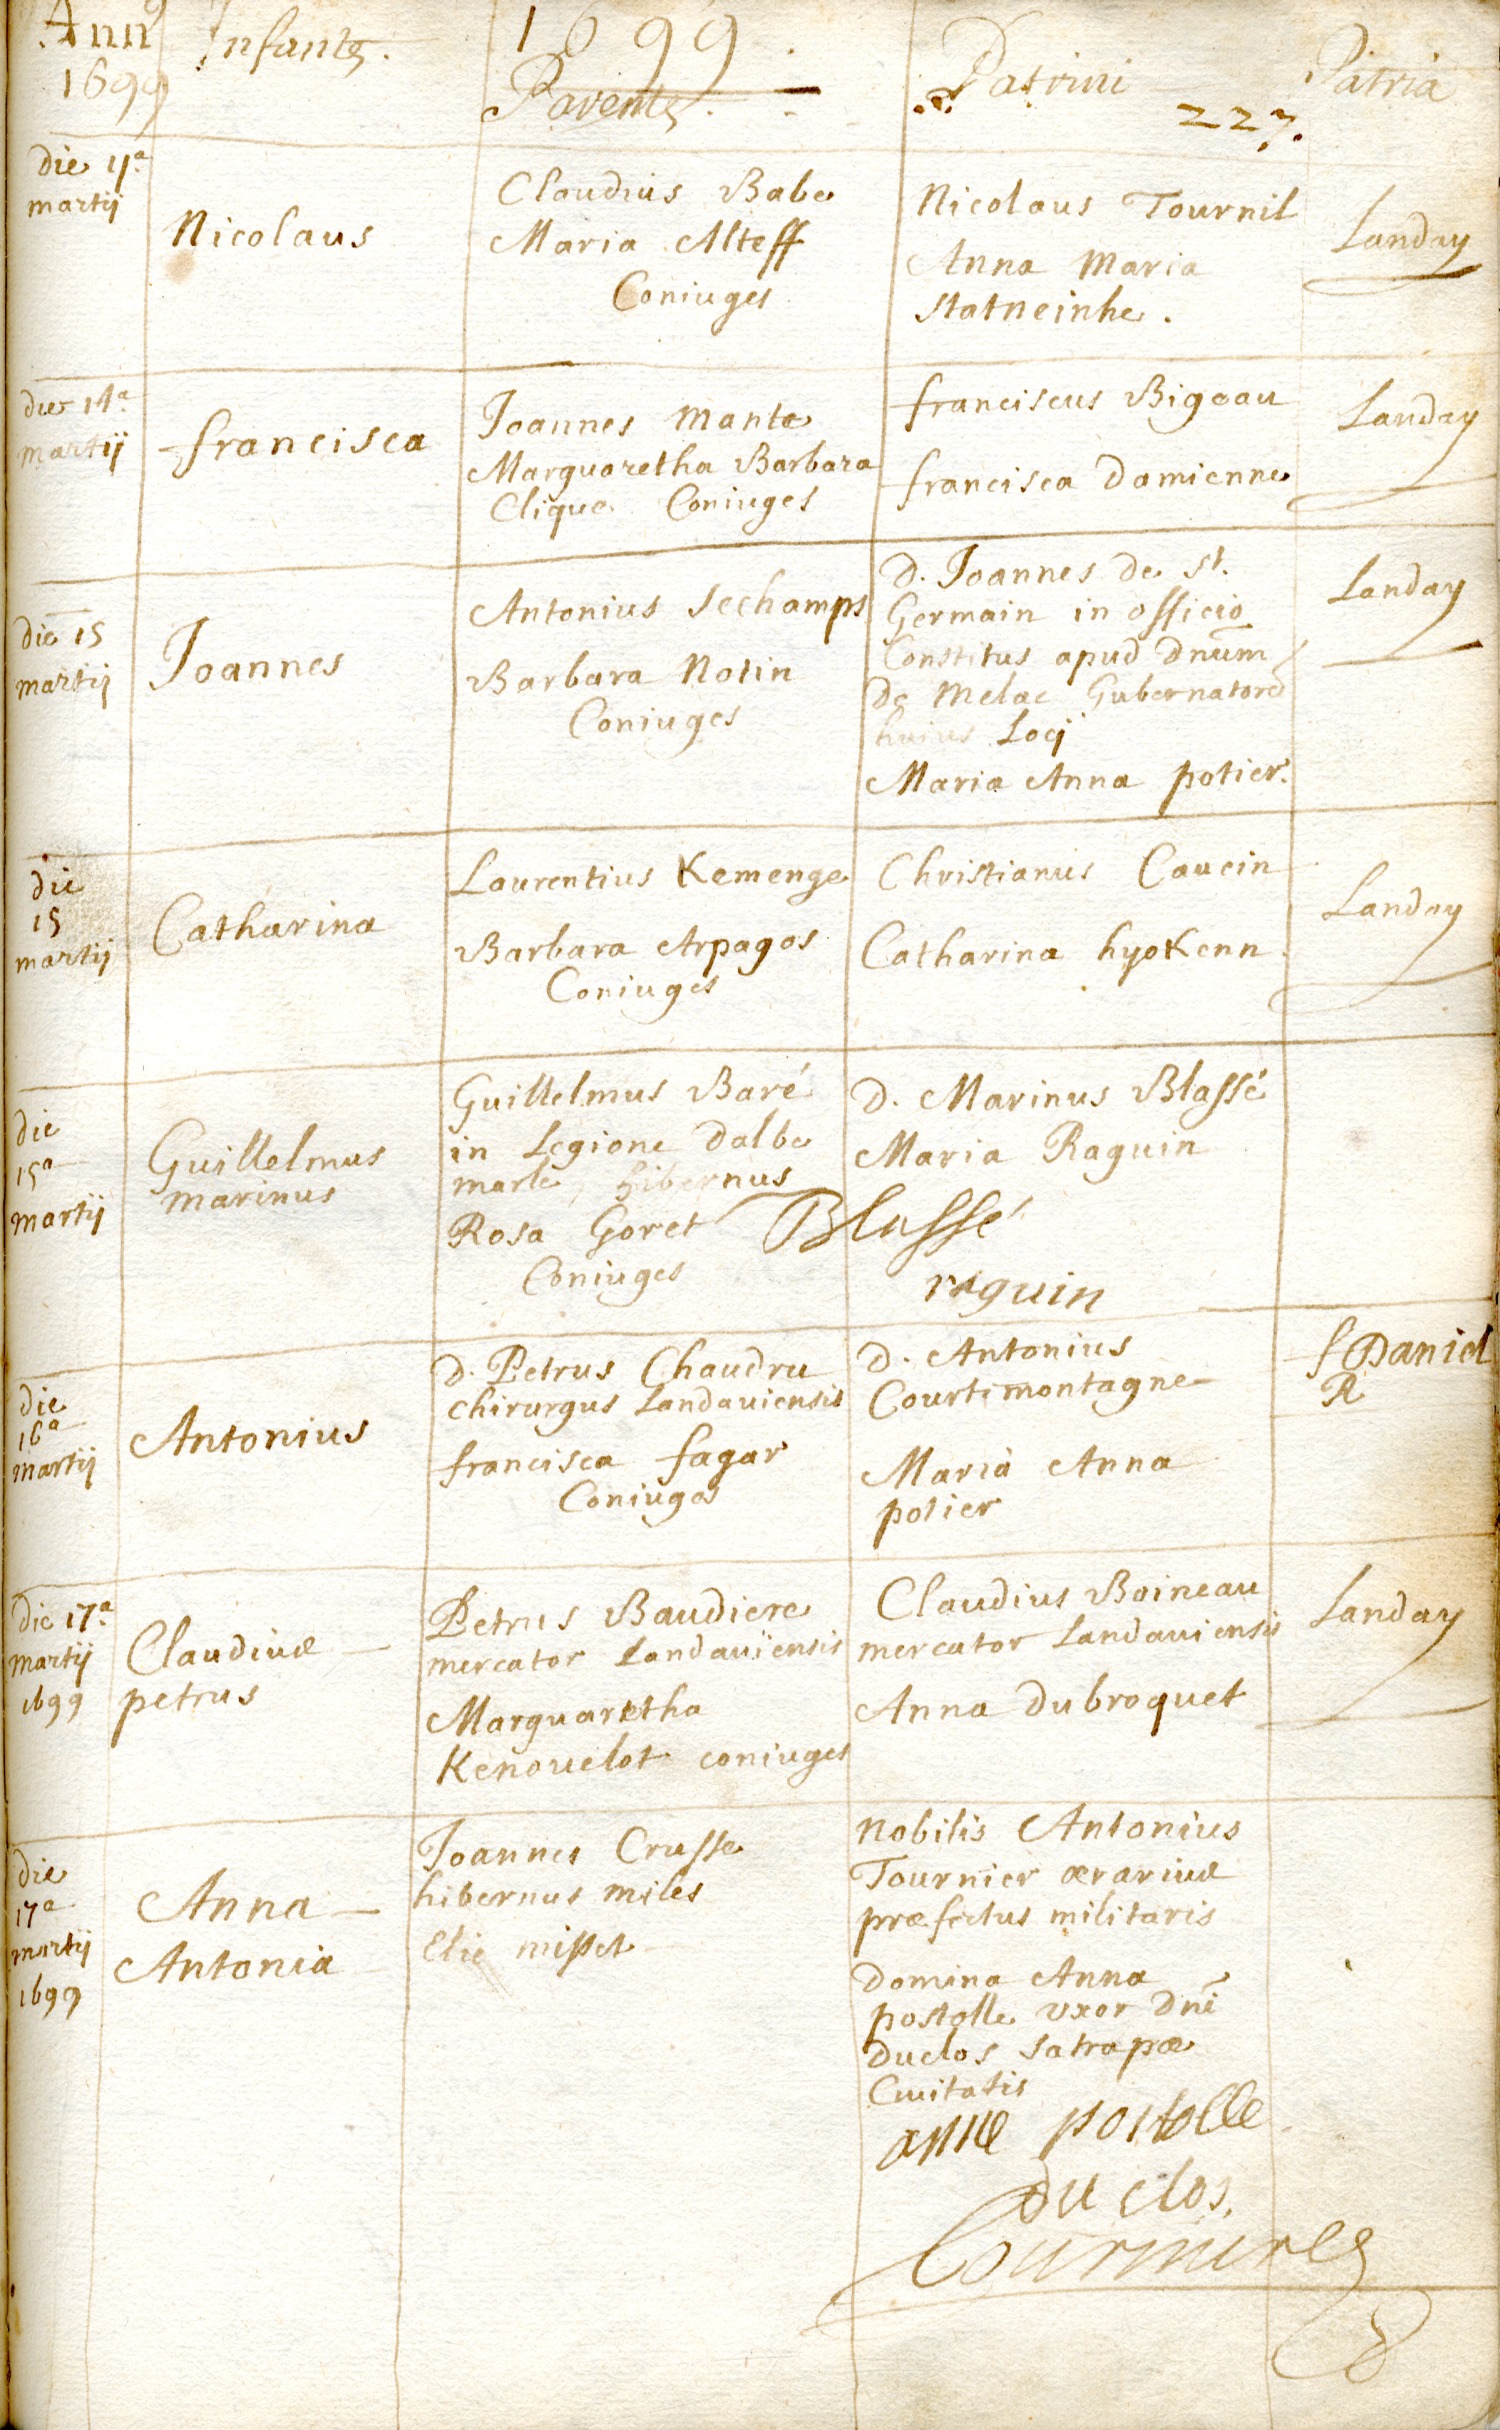 Anno Infantes. 1699. Patrini Patria
1699 Parentes. 227.
die 11a martij
Nicolaus
Claudius Babe
Maria Alteff
Coniuges
Nicolaus Tournil
Anna Maria
Statneinhe.
Landay
die 14a martij
francisca
Joannes Mante
Marguaretha Barbara
Clique Coniuges
franciscus Bigeau
francisca Damienne
Landay
die 15 martij
Joannes
Antonius Sechamps
Barbara Notin
Coniuges
d. Joannes de St.
Germain in officio
Constitus apud Dnum
de Melac Gubernatore
huius Locj
Maria Anna potier.
Landay
die
15
martij
Catharina
Laurentius Kemenge
Barbara Arpagos
Coniuges
Christianus Caucin
Catharina hyokenn.
Landay
die
15a
martij
Guillelmus
marinus
Guillelmus Baré
in Legione Dalbe
marle, hibernus
Rosa Goret
Coniuges
d. Marinus Blassé
Maria Raguin
Blassé
raguin
die
16a
martij
Antonius
d. Petrus Chaudru
chirurgus Landauiensis
francisca fagar
Coniuges
d. Antonius
Courtemontagne
Maria Anna
potier
f Daniel
R
die 17a
martij
1699
Claudius
petrus
Petrus Baudiere
mercator Landauiensis
Marguaretha
Kenouelot coniuges
Claudius Boineau
mercator Landauiensis
Anna Dubroquet
Landay
die
17a
martij
1699
Anna
Antonia
Joannes Crusse
hibernus miles
Elie misset
Nobilis Antonius
Tournier ærarius
præfectus militaris
Domina Anna
postolle vxor Dni
duclos satrapæ
Ciuitatis
anne postolle
du clos.
Tournier